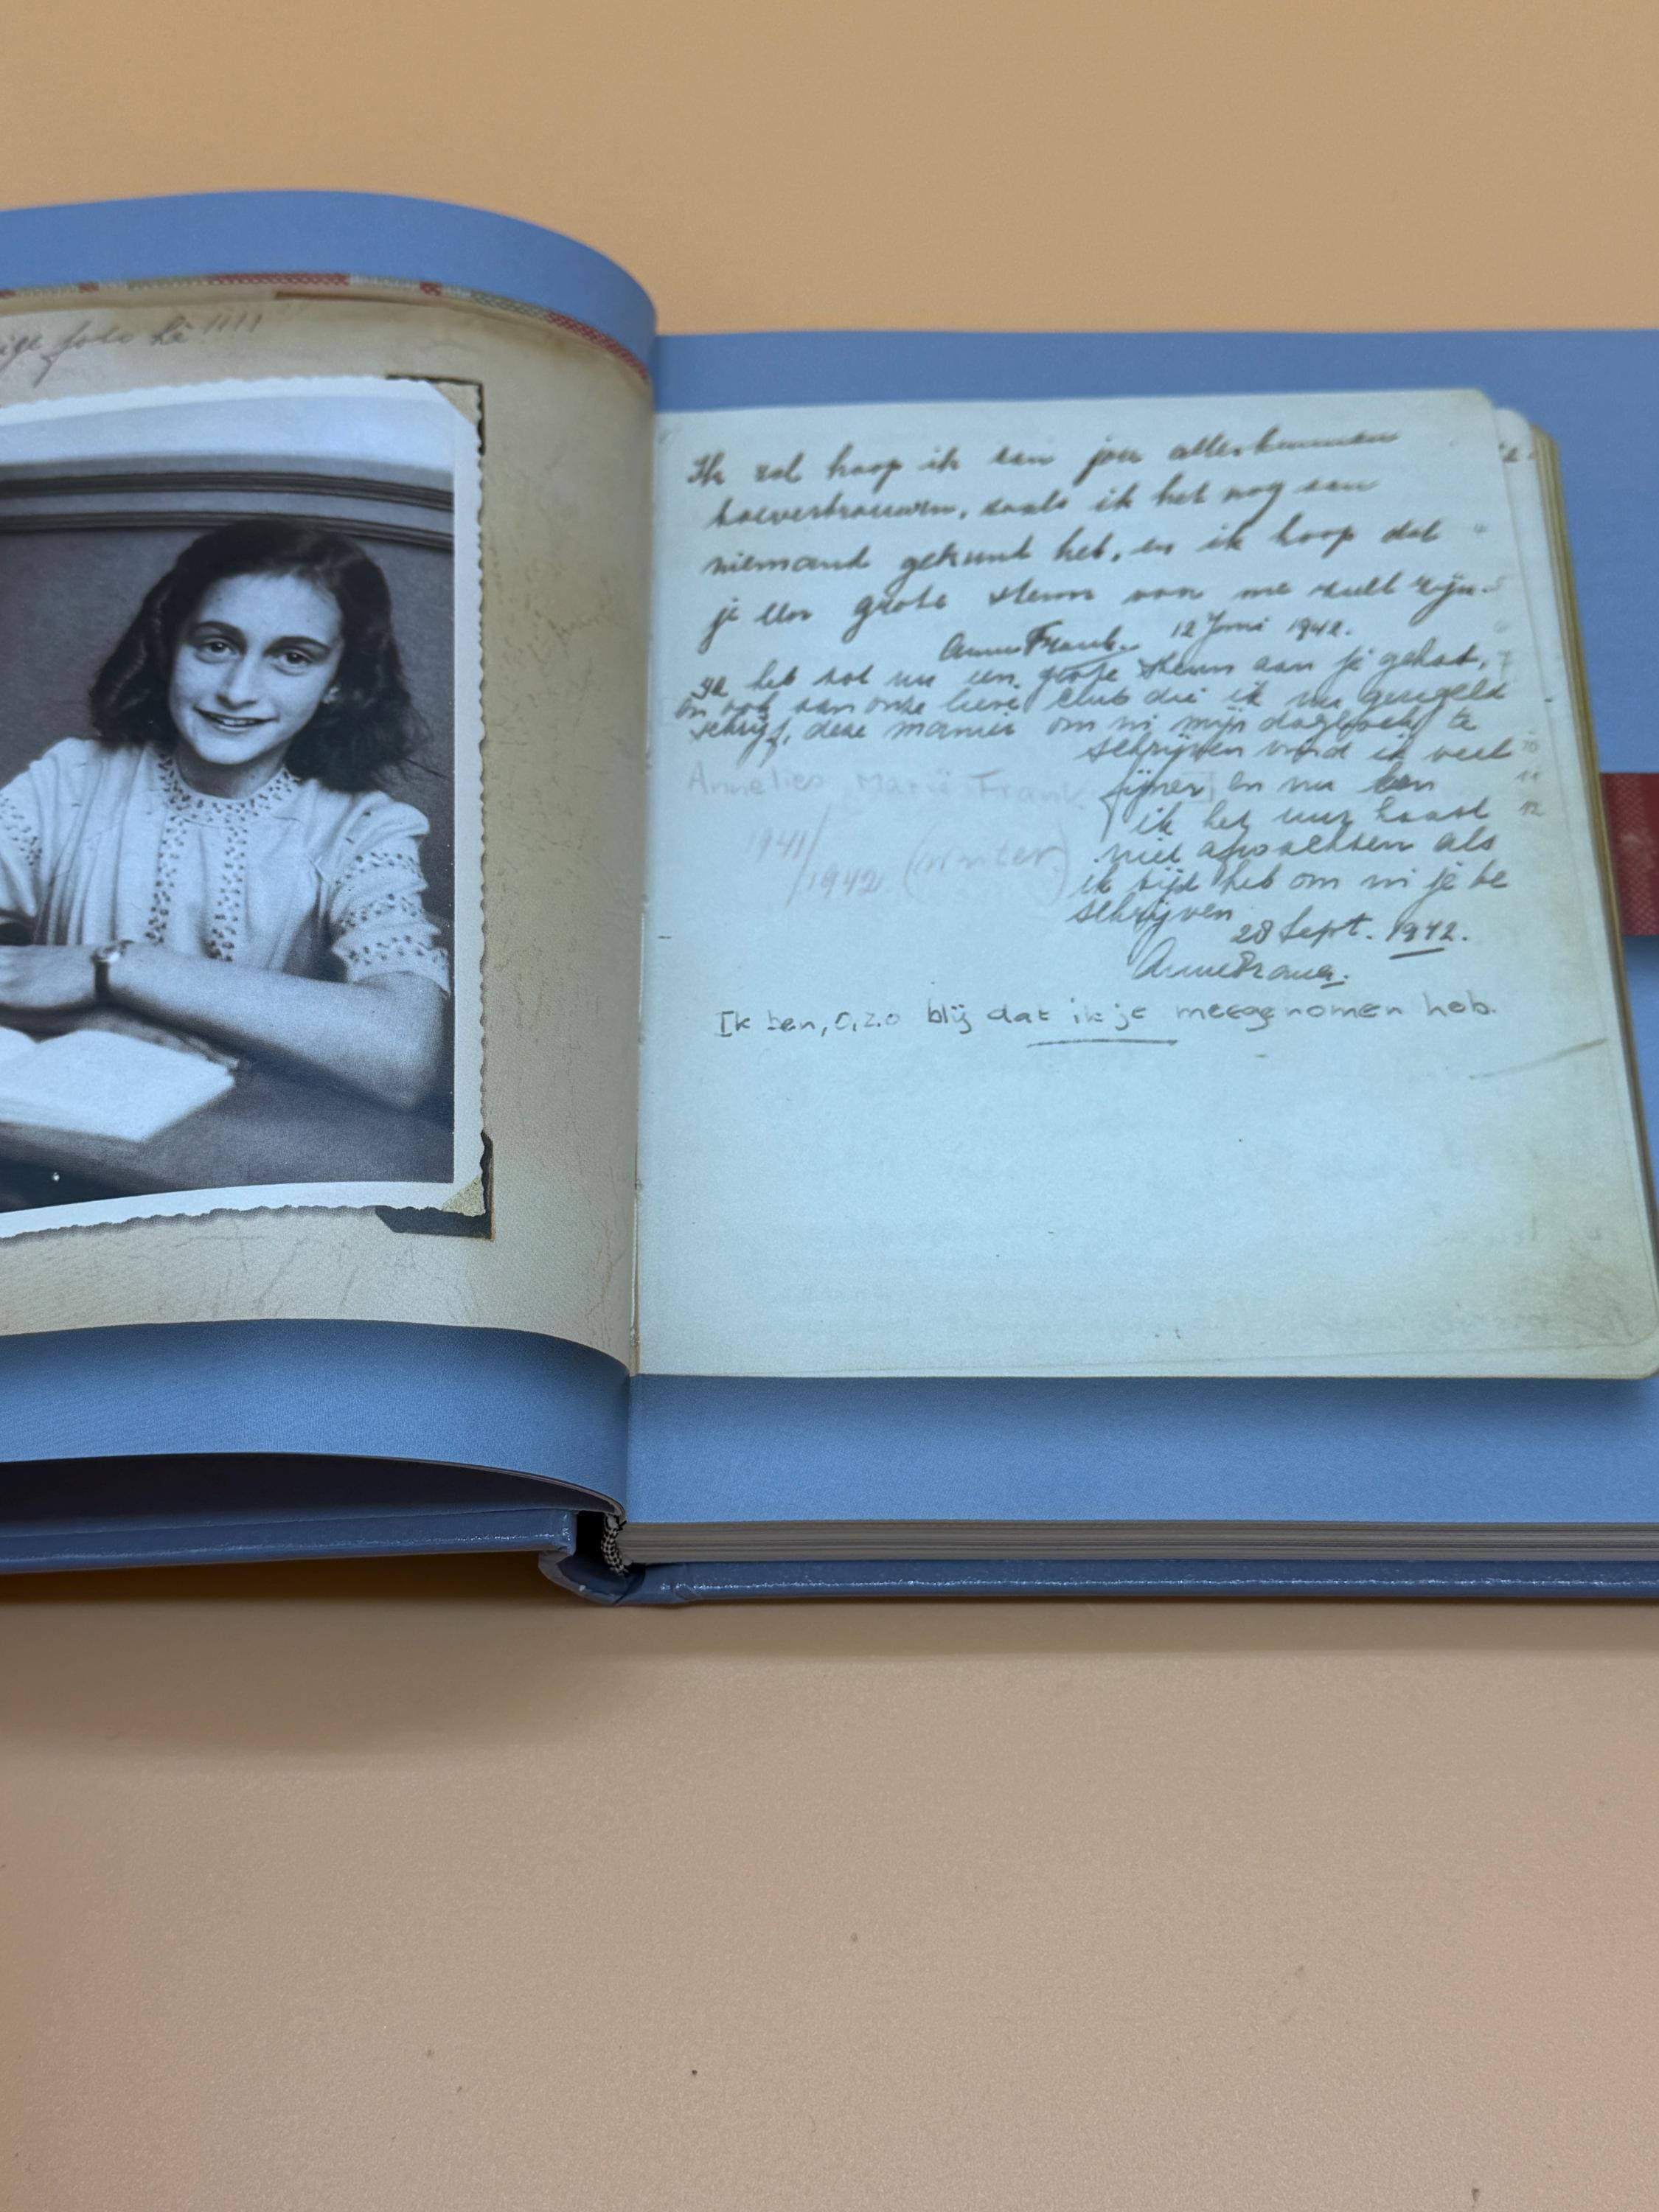 foto hè !!!!
Ik zal hoop ik aan jou alles kunnen
toevertrouwen, zoals ik het nog aan
niemand gekunt heb, en ik hoop dat
je een grote steun van me zult zijn.
Anne Frank. 12 Juni 1942.
Ik heb tot nu een grote steun aan je gehad,
en ook aan onze lieve club die ik nu geregeld
schrijf, deze manier om in mijn dagboek te
schrijven vind ik veel
fijner en nu kan
ik het uur haast
niet afwachten als
ik tijd heb om in je te
schrijven
Annelies Marie Frank
1941/
/1942.
28 Sept. 1942.
Anne Frank.
Ik ben, O, zo blij dat ik je meegenomen heb.
10
11
12